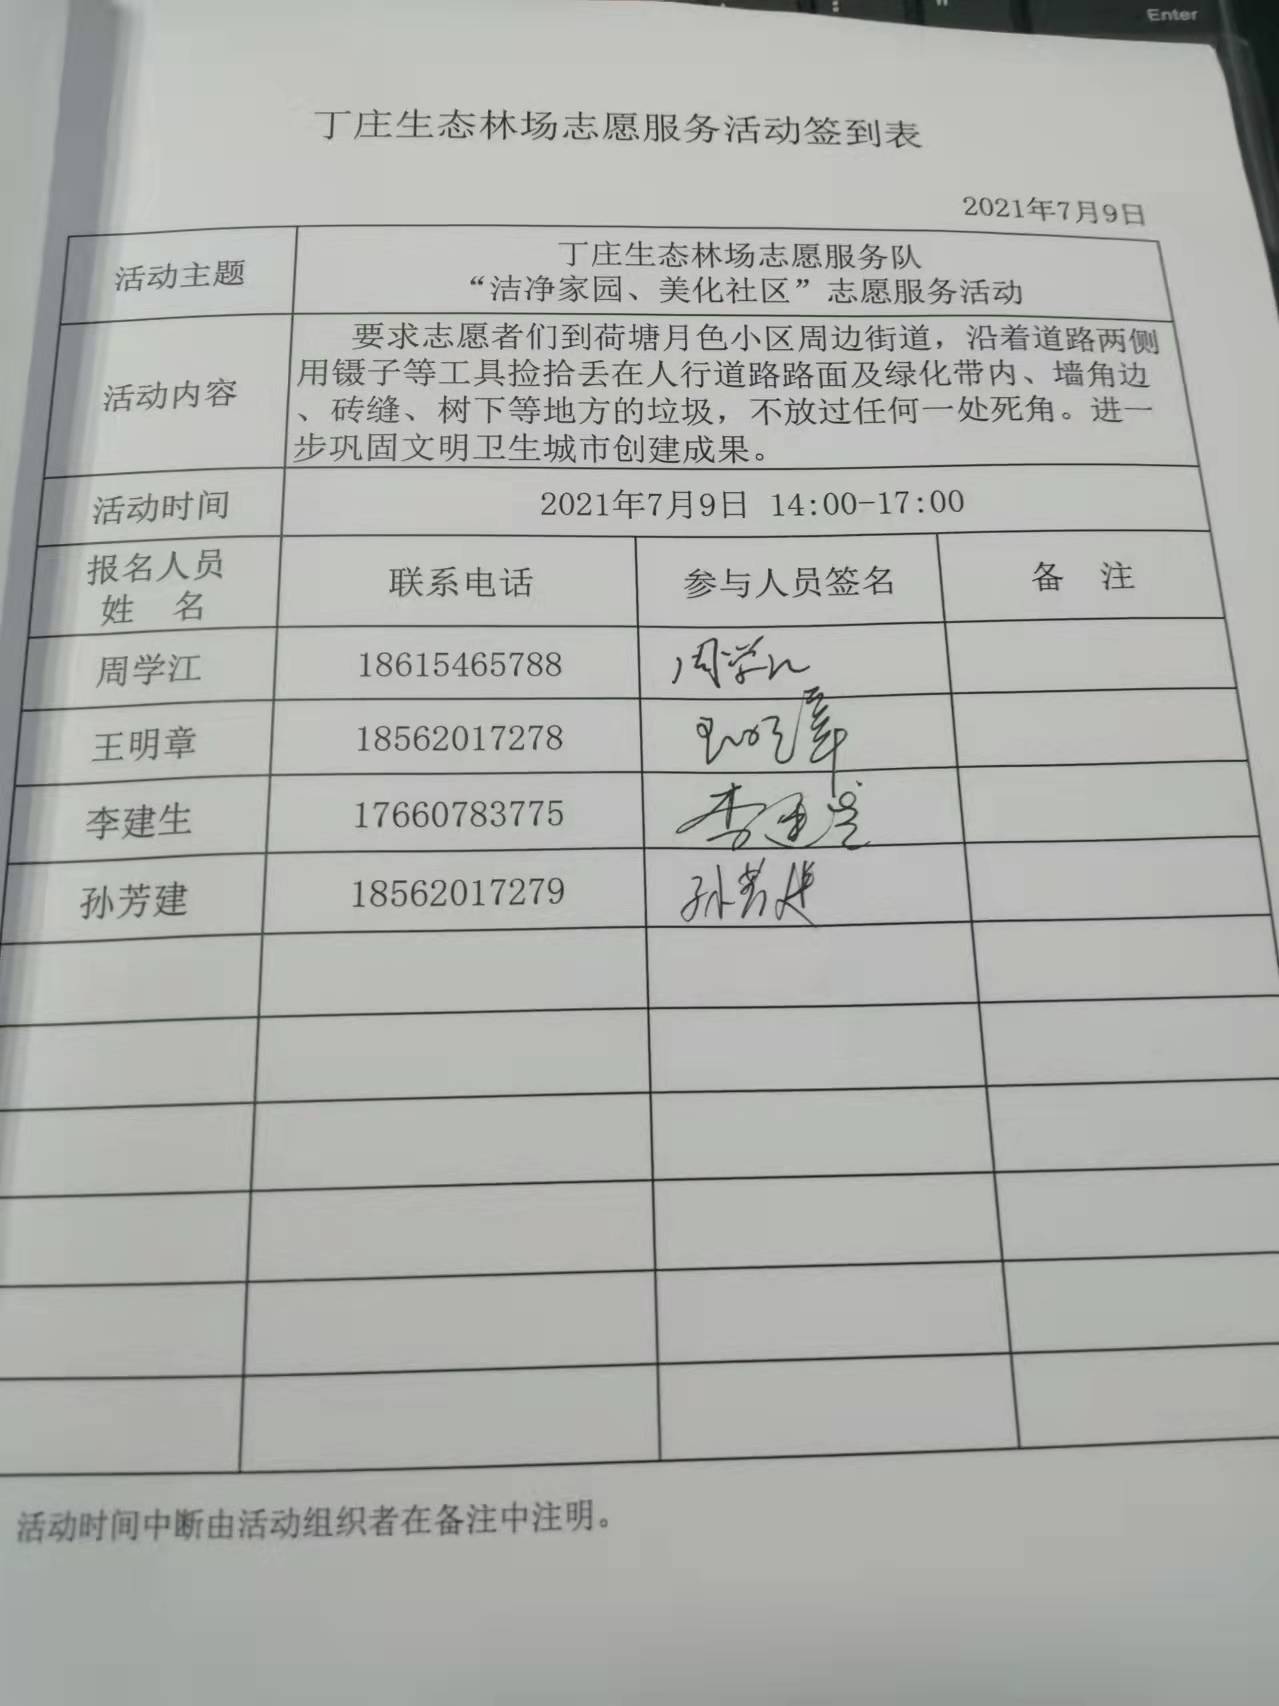 Enter
丁庄生态林场志愿服务活动签到表
2021年7月9日
活动主题
丁庄生态林场志愿服务队
“洁净家园、美化社区”志愿服务活动
活动内容
要求志愿者们到荷塘月色小区周边街道，沿着道路两侧
用镊子等工具捡拾丢在人行道路路面及绿化带内、墙角边
、砖缝、树下等地方的垃圾，不放过任何一处死角。进一
步巩固文明卫生城市创建成果。
活动时间
2021年7月9日 14:00-17:00
报名人员
姓 名
联系电话
参与人员签名
备 注
周学江 18615465788 周学江
王明章 18562017278 王明章
李建生 17660783775 李建生
孙芳建 18562017279 孙芳建
活动时间中断由活动组织者在备注中注明。